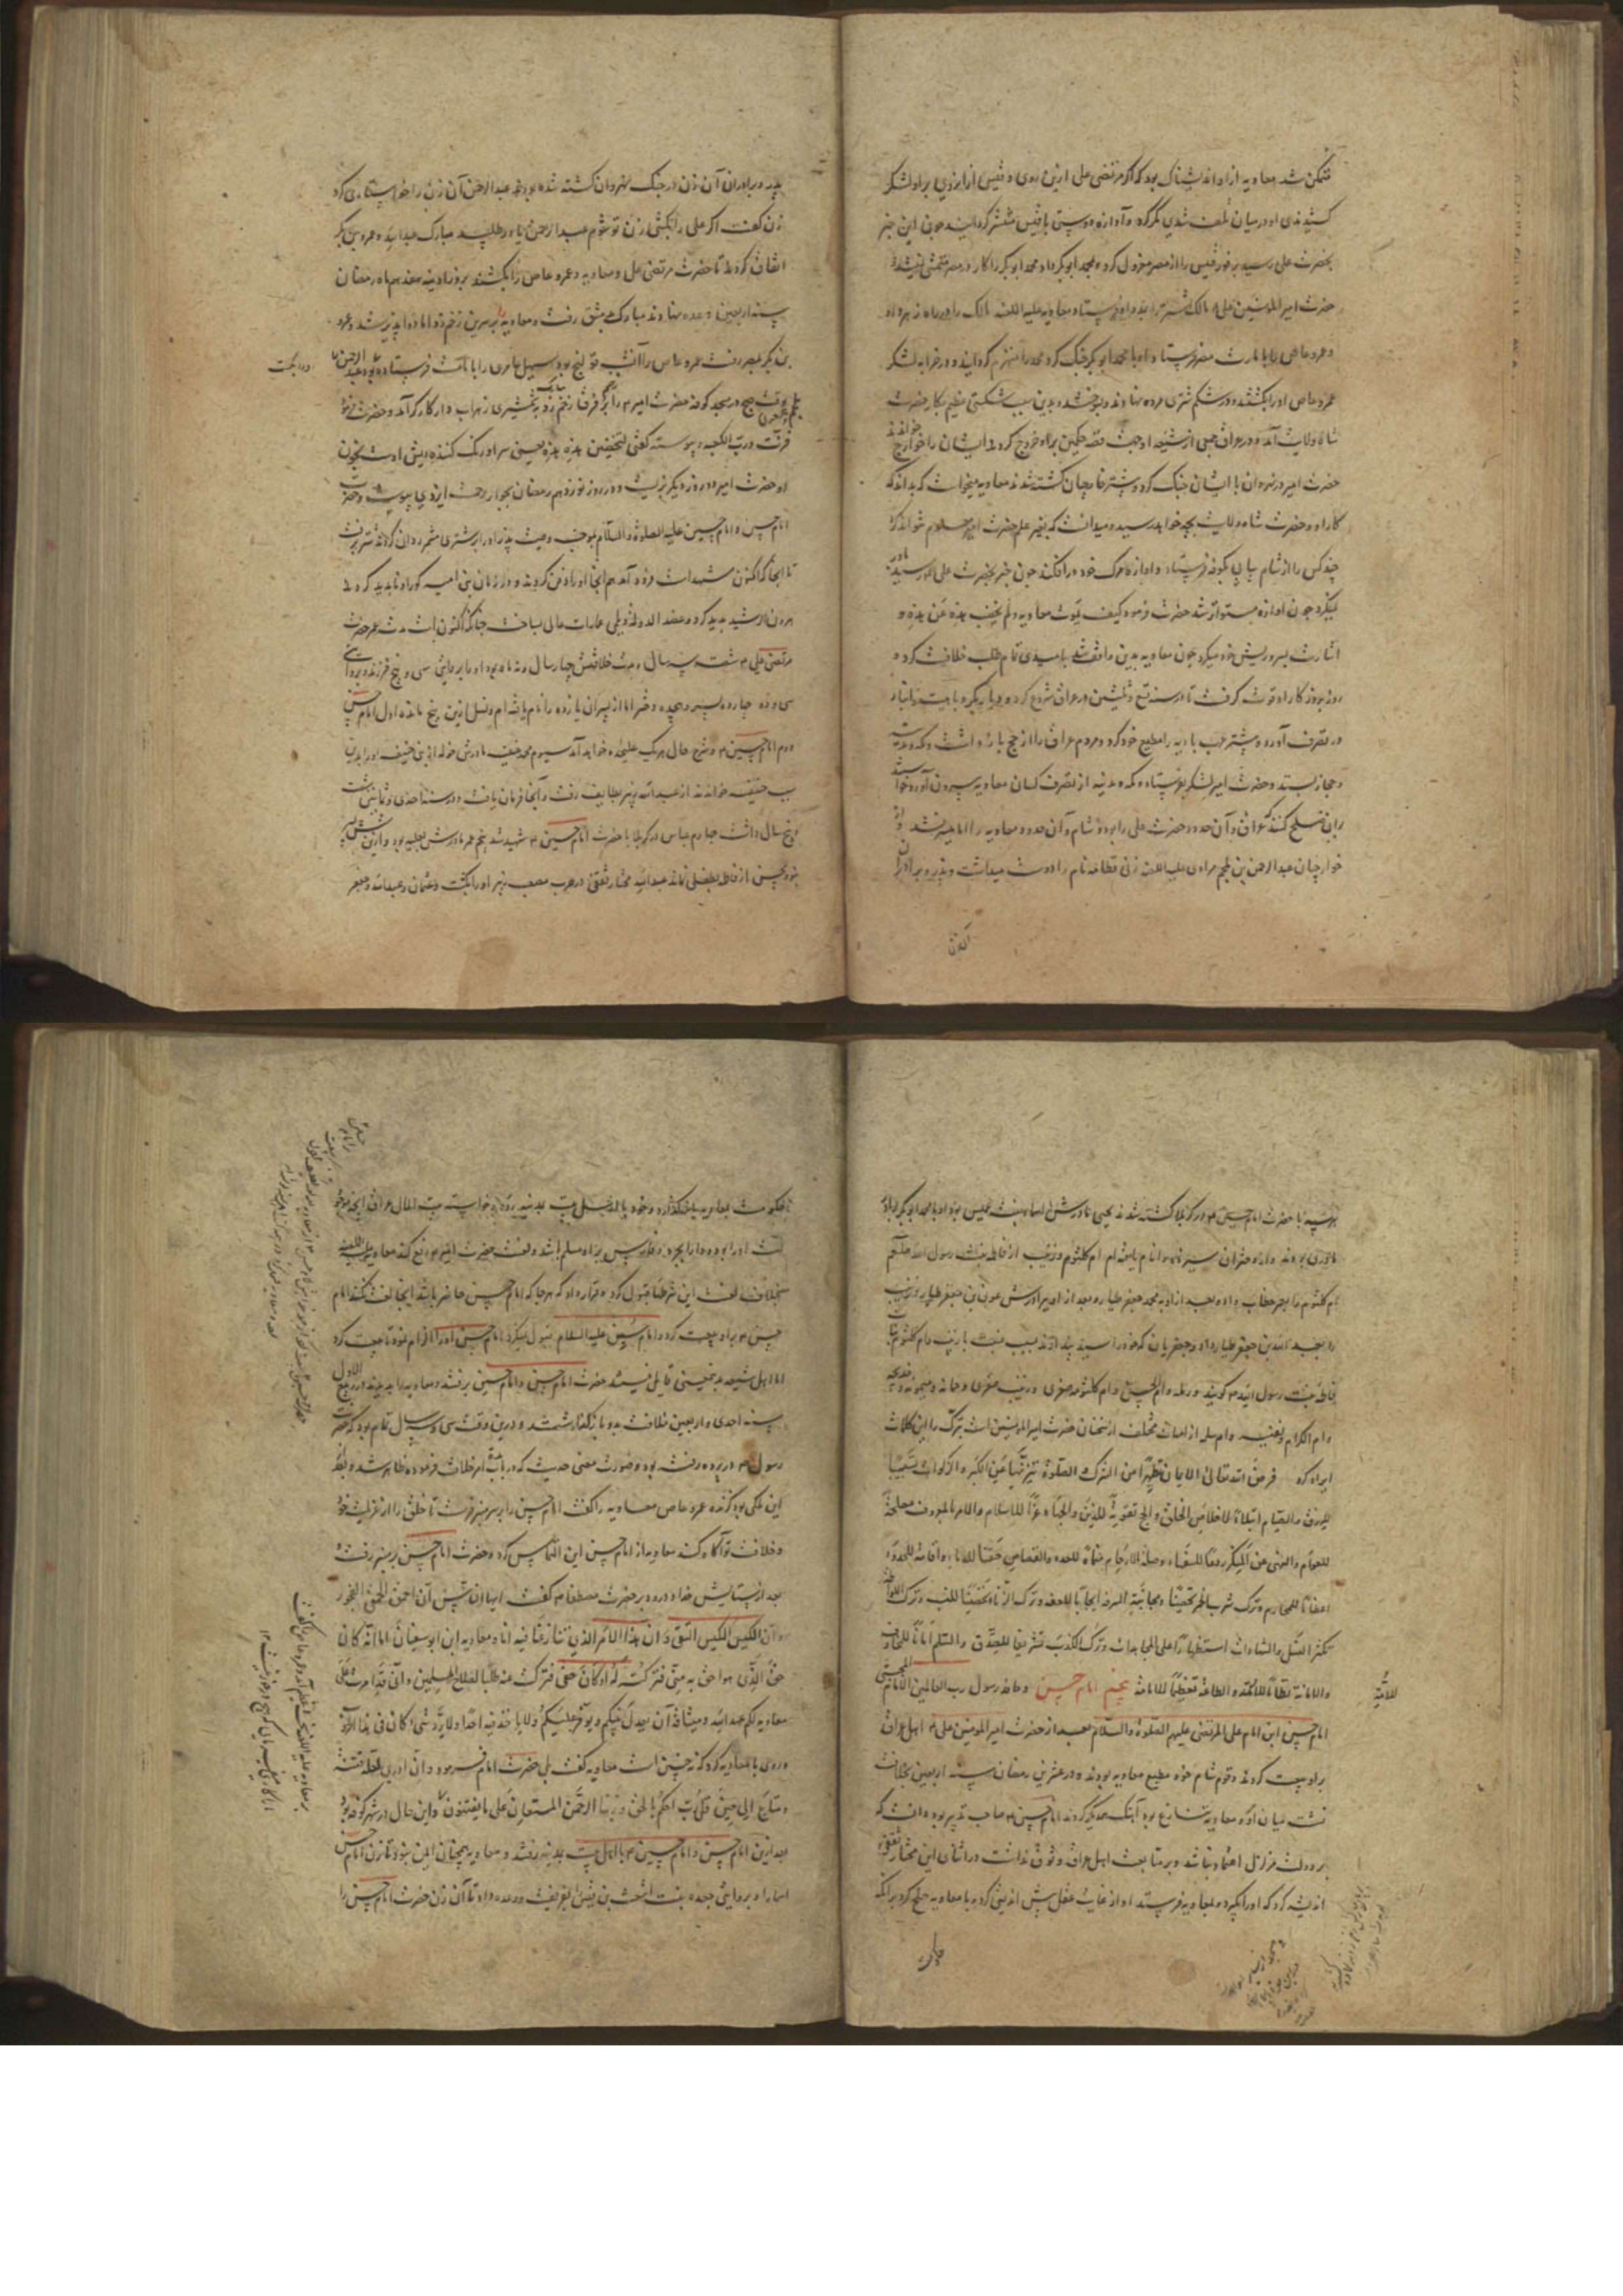 متمکن شد معاویه ازو اندیشناک بود که اگر مرتضی علی ازین روی و قیس از آن روی برو لشکر
کشیدندی او در میان تلف شدی مکر کرد و آوازه دوستی با قیس منتشر گردانید چون این خبر
بحضرت علی رسید بر فور قیس را از مصر معزول کرد و بمحمد ابوبکر داد و محمد ابوبکر را کار در مصر متمشی نمیشد
حضرت امیر المومنین علی مالک اشتر را بدو فرستاد معاویه علیه اللعنه مالک را در راه زهر داد
و عمرو عاص را با مارت مصر فرستاد و او با محمد ابوبکر جنک کرد محمد را منهزم گردانید و در خرابه لشکر
عمرو عاص او را بکشتند و در شکم خری مرده نهادند و بسوختند و بدین سبب شکستی عظیم بکار حضرت
شاه ولایت آمد و در عراق جمعی از شیعه او جهت قصه حکمین برو خروج کردند ایشان را خوارج خواندند
حضرت امیر در نهروان با ایشان جنک کرد و بیشتر خارجیان کشته شدند معاویه میخواست که بداند که
کار او و حضرت شاه ولایت بچه خواهد رسید و میدانست که بغیر علم حضرت امیر معلوم نتواند کرد
چند کس را از شام پیاپی بکوفه فرستاد و آوازه مرک خود در افکند چون خبر بحضرت علی رسید باور
نمیکرد چون آوازه متواتر شد حضرت فرمود کیف یموت معاویه و لم یخضب هذه من هذه و
اشارت بسر و ریش خود میکرد چون معاویه بدین واقف شد بامیدی تمام طلب خلافت کرد و
روز بروز کار او قوت گرفت تا در سنه تسع و ثلثین در عراق شروع کرد و دیار بکر و هیت و انبار
در تصرف آورد و بیشتر عرب بادیه را مطیع خود کرد و مردم عراق را از حج باز داشت و مکه و مدینه
و حجاز بستد و حضرت امیر لشکر بفرستاد و مکه و مدینه از تصرف کسان معاویه بیرون آورد
بران صلح کنند که عراق و آن حدود حضرت علی را بود و شام و آن حدود معاویه را اما میسر نشد
خوارجیان عبد الرحمن بن ملجم مرادی علیه اللعنه زنی قطامه نام را دوست میداشت و پدر و برادران
پدر و برادران آن زن در جنک نهروان کشته شده بودند عبد الرحمن آن زن را خواستاری کرد
زن گفت اگر علی را بکشی زن تو شوم عبد الرحمن یاور طلبید مبارک عبد الله و عمرو بن بکر
اتفاق کردند تا حضرت مرتضی علی و معاویه و عمرو عاص را بکشند بروز آدینه هفدهم ماه رمضان
سنه اربعین وعده نهادند مبارک بدمشق رفت و معاویه را بر سرین زخم زد اما دوا پذیر شد و عمرو
بن بکر بمصر رفت عمرو عاص را آن شب قولنج بود سهیل عامری را بامامت فرستاده بود
بوقت صبح در مسجد کوفه حضرت امیر را بر فرق زخم زد بشمشیری زهراب دار کارگر آمد و حضرت فرمود
فزت و رب الکعبه و پیوسته گفتی لتخضبن هذه بهذه یعنی سر او رنک کننده ریش اوست بخون
او حضرت امیر دو روز دیگر بزیست و در روز نوزدهم رمضان بجوار رحمت ایزدی پیوست و حضرت
امام حسن و امام حسین علیه الصلوة و السلام بموجب وصیت پدر او را بر شتری
تا آنجا که اکنون مشهد است فرود آمد هم آنجا او را دفن کردند و در زمان بنی امیه گور او ناپدید کردند
هرون الرشید پدید کرد و عضد الدوله دیلمی عمارات عالی بساخت چنانکه اکنون است مدت عمر حضرت
مرتضی علی شصت و سه سال و مدت خلافتش چهار سال و نه ماه بود او را بروایتی سی و پنج فرزند بود
سی و دو چهارده پسر و هجده دختر اما از پسران یازده را نام یافته ام و نسل ازین پنج مانده اول امام حسن
دوم امام حسین و شرح حال هریک علیحده خواهد آمد سیوم محمد حنفیه مادرش خوله از بنی حنیفه
سبب حنفیه خواندند از عبد الله زبیر بطایف رفت و آنجا فرمان یافت در سنه احدی و ثمانین
و پنج سال داشت چهارم عباس در کربلا با حضرت امام حسین شهید شد پنجم عمر مادرش تغلبیه بود و ازین شش پسر
نبود محسن از فاطمه بطفلی نماند عبد الله مختار ثقفی در حرب مصعب زبیر او را بکشت و عثمان و عبد الله و جعفر
هر سه با حضرت امام حسین در کربلا کشته شدند یحیی مادرش اسماء بنت عمیس بود او با محمد ابوبکر
مادری بودند و از دختران سیزده را نام یافته ام ام کلثوم و زینب از فاطمه بنت رسول الله صلعم
ام کلثوم را بعمر خطاب داد و بعد ازو بمحمد جعفر طیار و بعد ازو ببرادرش عون بن جعفر طیار و زینب
را بعبد الله بن جعفر طیار داد و جعفریان که خود را سید
فاطمه بنت رسول الله گویند و رمله و ام الحسن و ام کلثوم صغری و زینب صغری و جمانه و میمونه و خدیجه
و ام الکرام و نفیسه و ام سلمه از امهات مختلف از سخنان حضرت امیر المومنین است تبرک را این کلمات
ایراد کرد فرض الله تعالی الایمان تطهیرا من الشرک و الصلوة تنزیها عن الکبر و الزکوة تسبیبا
للرزق و الصیام ابتلاء لاخلاص الخلق و الحج تقویة للدین و الجهاد عزا للاسلام و الامر بالمعروف مصلحة
للعوام و النهی عن المنکر ردعا للسفهاء و صلة الارحام منماة للعدد و القصاص حقنا للدماء و اقامة الحدود
اعظاما للمحارم و ترک شرب الخمر تحصینا للعقل و مجانبة السرقة ایجابا للعفة و ترک الزنا تحصینا للنسب و ترک اللواط
تکثیرا للنسل و الشهادات استظهارا علی المجاحدات و ترک الکذب تشریفا للصدق و السلم امانا للمخاوف
و الامانة نظاما للامة و الطاعة تعظیما للامامة پنجم امام حسن و حافد رسول رب العالمین الامام المجتبی
للامة
امام حسن ابن امام علی المرتضی علیهم الصلوة و السلام بعد از حضرت امیر المومنین علی اهل عراق
برو بیعت کردند و قوم شام خود مطیع معاویه بودند و در عشرین رمضان سنه اربعین بخلافت
نشست میان او و معاویه تنازع بود آهنگ همدیگر کردند امام حسن صاحب تدبیر بود دانست که
بر دولت متزلزل اعتماد نباشد و بر متابعت اهل عراق وثوق نداشت در اثنای این مختار ثقفی
اندیشه کرد که او را بگیرد و بمعاویه فرستد او از غایت عقل پیش اندیشی کرد و با معاویه صلح کرد بر آنکه
حکومت
تا حکومت بمعاویه باز گذارد و خود با اهل بیت بمدینه رود و خواسته بیت المال عراق آنچه موجود
است او را بود و دارابجرد و فارس برو مسلم باشد و لعنت حضرت امیر رفع کند معاویه علیه اللعنه
بخلاف لعنت این شرطها قبول کرد و قرار داد که هر جا که امام حسن حاضر باشد آنجا لعنت نکنند امام
حسن برو بیعت کرد و امام حسین علیه السلام قبول نمیکرد امام حسن او را الزام نمود تا بیعت کرد
اما اهل شیعه بدین معنی قایل نیستند حضرت امام حسن و امام حسین برفتند و معاویه را بدیدند در ربیع الاول
سنه احدی و اربعین خلافت بدو باز گذاشتند و درین وقت سی سال تمام بود که حضرت
رسول در پرده رفته بود و صورت معنی حدیث که در باب امر خلافت فرموده ظاهر شد و بعد
این ملکی بود گزنده عمرو عاص معاویه را گفت امام حسن را بر سر منبر فرست تا خلق را از عزلت خود
و خلافت تو آگاه کند معاویه از امام حسن این التماس کرد و حضرت امام حسن بر منبر رفت
بعد از ستایش خدا و درود بر حضرت مصطفی گفت ایها الناس ان احمق الحمق الفجور
و ان اکیس الکیس التقی و ان هذا الامر الذی تنازعنا فیه انا و معاویه ابن ابوسفیان اما انه کان
حق الذی هو احق به منی فترکته له او کان حقی فترکت عنه طلبا لصلاح المسلمین و انی قدامرت علی
معاویه لکم عهد الله و میثاقه ان یعدل بینکم و یوفر علیکم و لا یاخذ فیه احدا و لا یرد شیئا کان فی هذا الامر
و روی با معاویه کرد که نه چنین است معاویه گفت بلی حضرت امام فرمود و ان ادری لعله فتنة
و متاع الی حین قل رب احکم بالحق و ربنا الرحمن المستعان علی ما تصفون و این حال در شهر کوفه بود
بعد ازین امام حسن و امام حسین با اهل بیت بمدینه رفتند و معاویه همچنان ایمن نبود تا زن امام حسن
اسماء را و بروایتی جعده بنت اشعث بن قیس را بفریفت و وعده داد تا آن زن حضرت امام حسن را